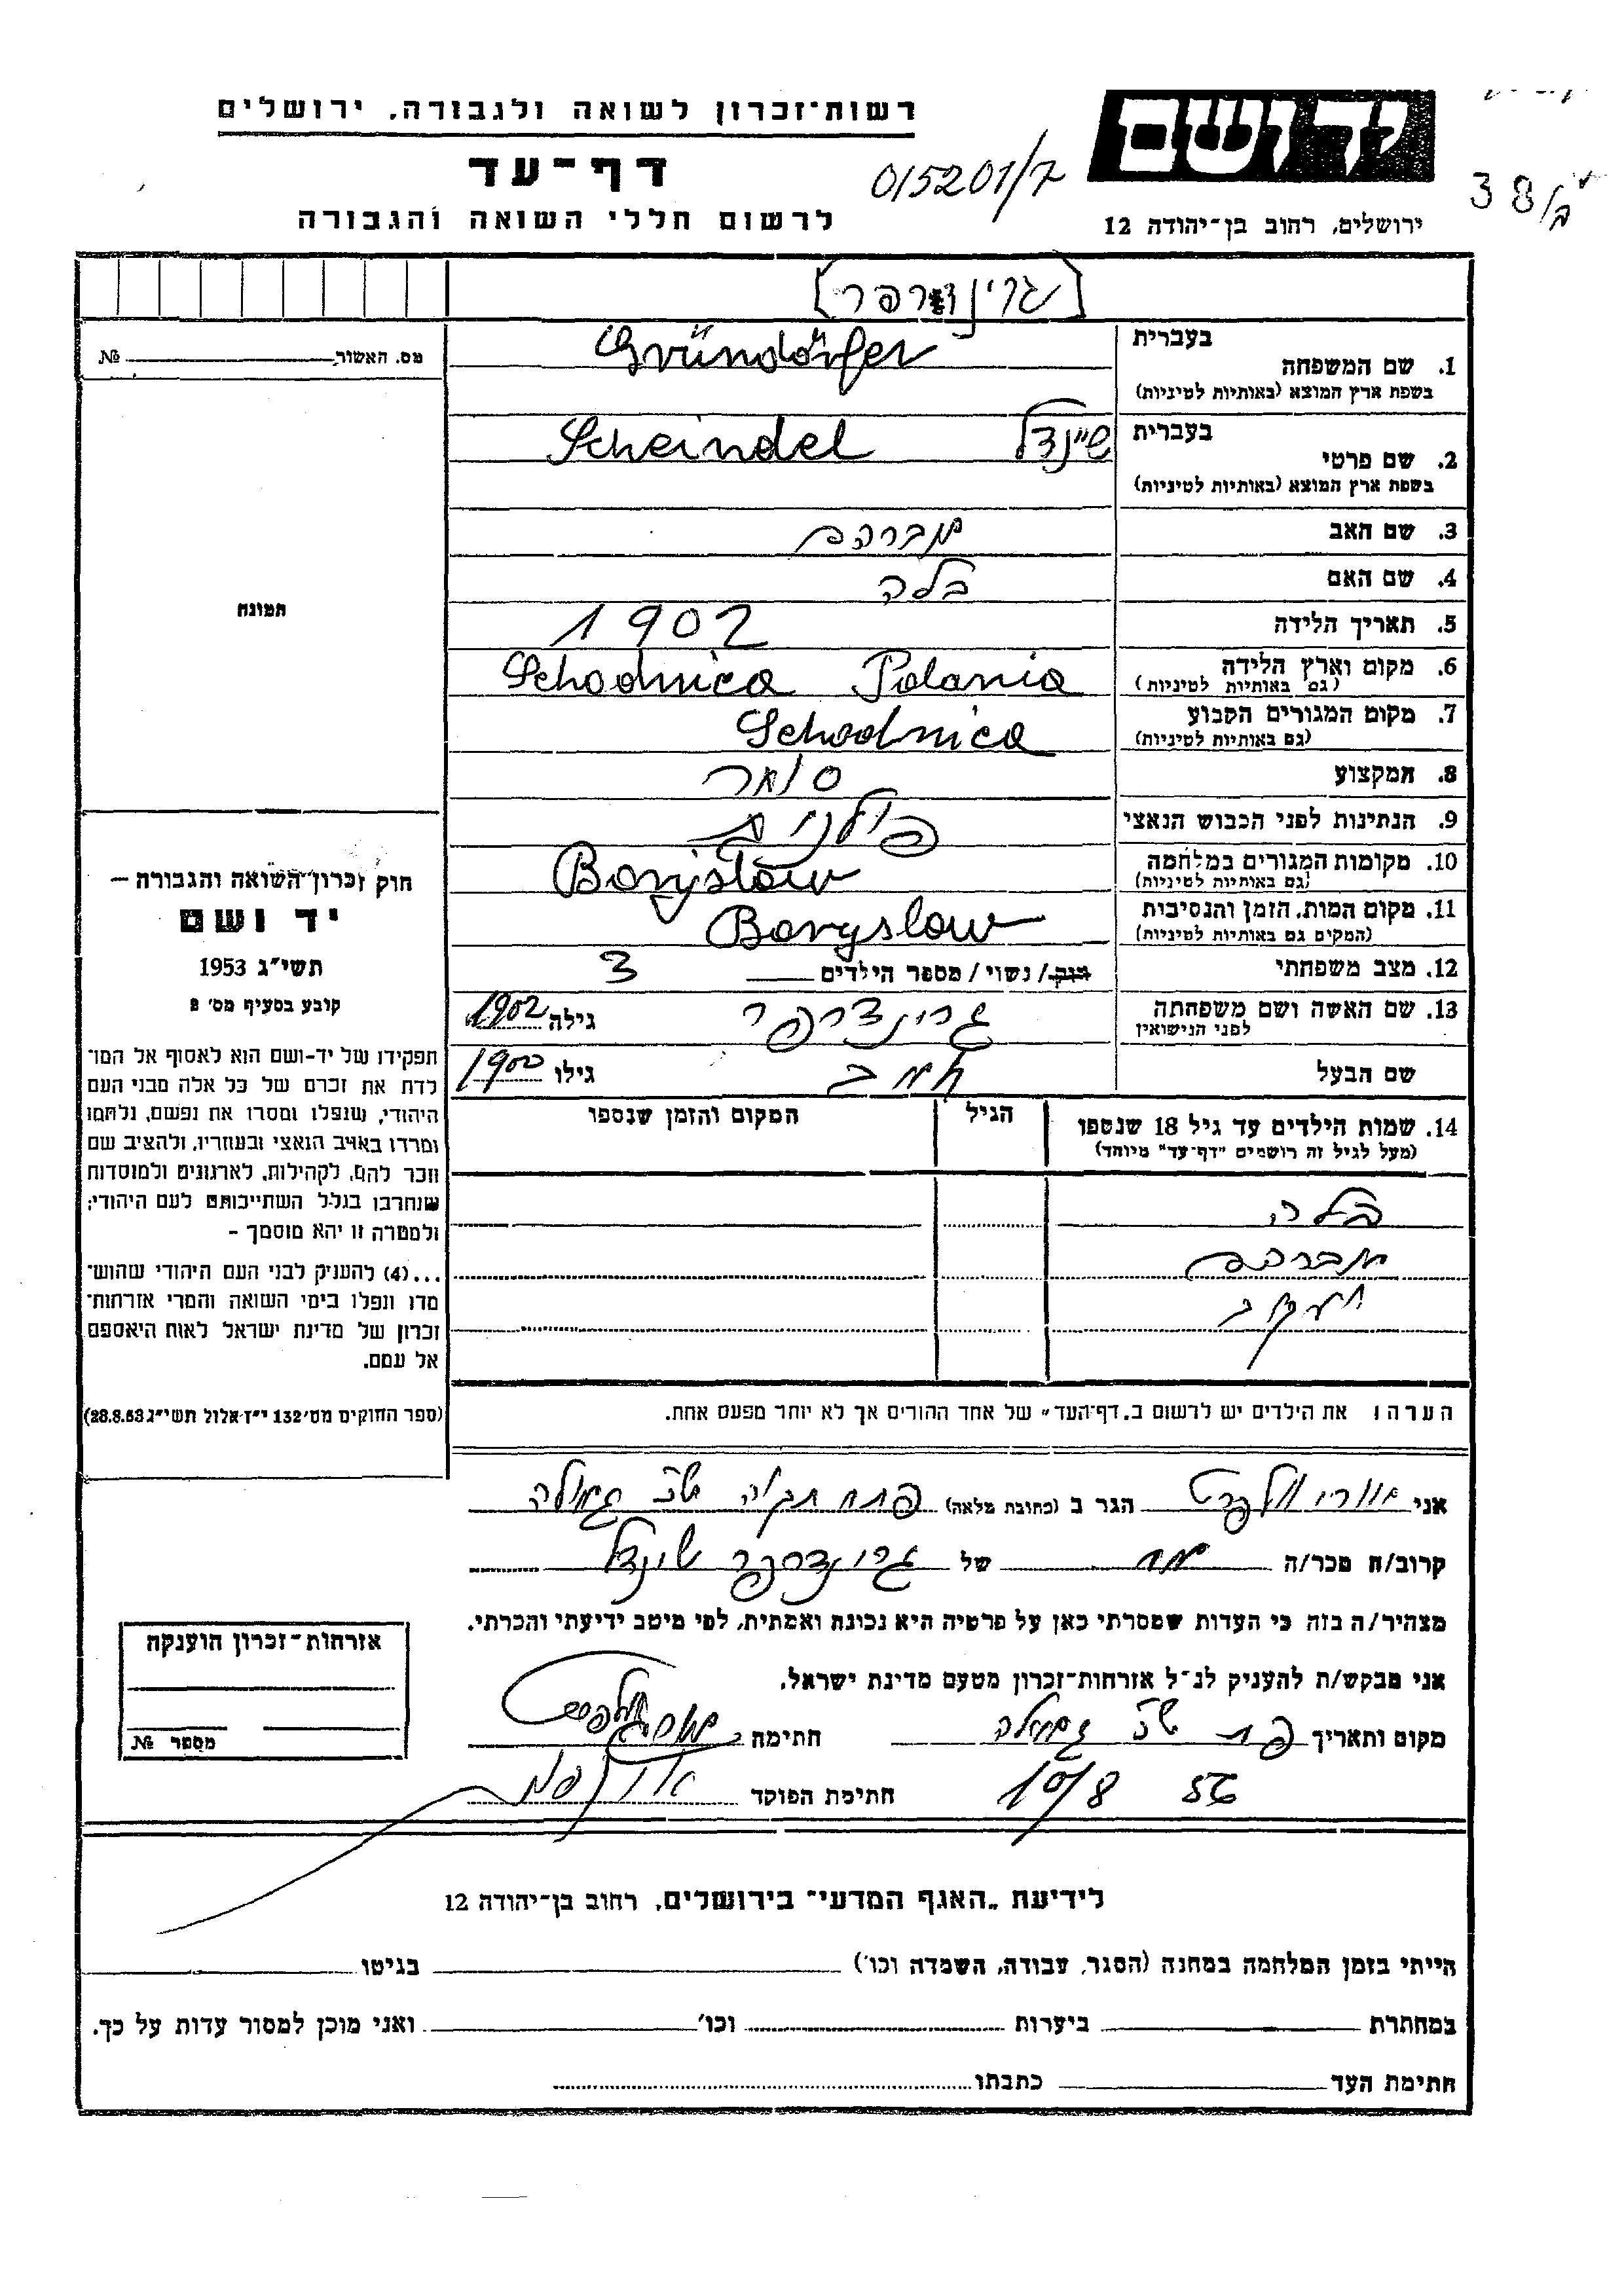 רשות־זכרון לשואה ולגבורה, ירושלים
דף־עד
לרשום חללי השואה והגבורה
015201/7
יד ושם
ירושלים, רחוב בן־יהודה 12
38/ב
[גרינדרפר]
מס. האשור № 
בעברית
1. שם המשפחה Gründörfer
בשפת ארץ המוצא (באותיות לטיניות)
בעברית שיינדל
2. שם פרטי Scheindel
בשפת ארץ המוצא (באותיות לטיניות)
3. שם האב אברהם
4. שם האם בלה
5. תאריך הלידה 1902
6. מקום וארץ הלידה Schodnica Polania
(גם באותיות לטיניות)
7. מקום המגורים הקבוע Schodnica
(גם באותיות לטיניות)
8. המקצוע סוחר
9. הנתינות לפני הכבוש הנאצי
10. מקומות המגורים במלחמה Boryslow
(גם באותיות לטיניות)
11. מקום המות, הזמן והנסיבות Boryslow
(המקום גם באותיות לטיניות)
12. מצב משפחתי רוק/ נשוי / מספר הילדים 3
13. שם האשה ושם משפחתה גרינדרפר גילה 1902
לפני הנישואין
שם הבעל גילו 1900
14. שמות הילדים עד גיל 18 שנספו הגיל המקום והזמן שנספו
(מעל לגיל זה רושמים "דף־עד" מיוחד)
בלה
אברהם
יעקב
הערה: את הילדים יש לרשום ב"דף־העד" של אחד ההורים אך לא יותר מפעם אחת.
תמונה
חוק זכרון השואה והגבורה —
יד ושם
תשי"ג 1953
קובע בסעיף מס' 2
תפקידו של יד־ושם הוא לאסוף אל המו־
לדת את זכרם של כל אלה מבני העם
היהודי, שנפלו ומסרו את נפשם, נלחמו
ומרדו באויב הנאצי ובעוזריו, ולהציב שם
וזכר להם, לקהילות, לארגונים ולמוסדות
שנחרבו בגלל השתייכותם לעם היהודי;
ולמטרה זו יהא מוסמך –
...(4) להעניק לבני העם היהודי שהוש־
מדו ונפלו בימי השואה והמרי אזרחות־
זכרון של מדינת ישראל לאות היאספם
אל עמם.
(ספר החוקים מס' 132 י"ז אלול תשי"ג 28.8.53)
אני הגר ב (כתובת מלאה) פתח תקוה
קרוב/ה מכר/ה אח של גרינדרפר שינדל
מצהיר/ה בזה כי העדות שמסרתי כאן על פרטיה היא נכונה ואמתית, לפי מיטב ידיעתי והכרתי.
אני מבקש/ת להעניק לנ"ל אזרחות־זכרון מטעם מדינת ישראל.
מקום ותאריך פת חתימה
10/8 56 חתימת הפוקד
אזרחות־זכרון הוענקה
מספר №
לידיעת "האגף המדעי" בירושלים, רחוב בן־יהודה 12
הייתי בזמן המלחמה במחנה (הסגר, עבודה, השמדה וכו') בגיטו
במחתרת ביערות וכו' ואני מוכן למסור עדות על כך.
חתימת העד כתבתו